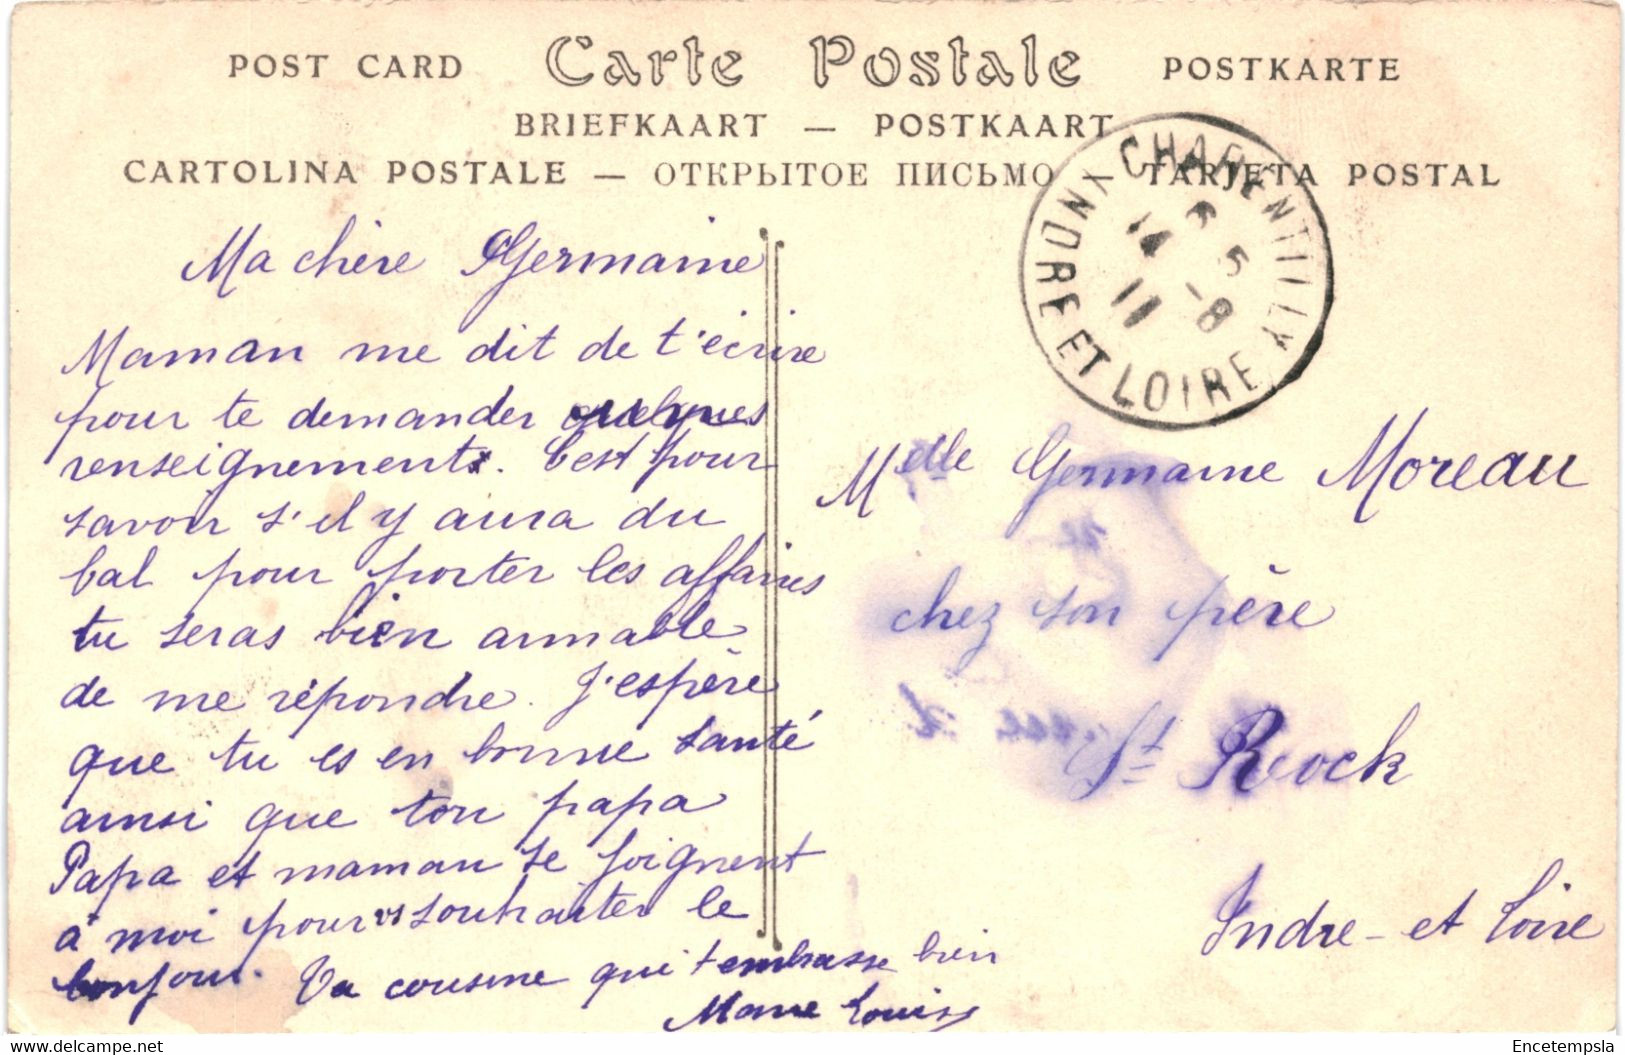 POST CARD Carte Postale POSTKARTE
BRIEFKAART — POSTKAART
CARTOLINA POSTALE — ОТКРЫТОЕ ПИСЬМО — TARJETA POSTAL
CHARENTILLY
INDRE ET LOIRE
6 5
14 -8
11
Ma chère Germaine
Maman me dit de t'écrire
pour te demander quelques
renseignements. C'est pour
savoir s'il y aura du
bal pour porter les affaires
tu seras bien aimable
de me répondre. J'espère
que tu es en bonne santé
ainsi que ton papa
Papa et maman se joignent
à moi pour vs souhaiter le
bonjour. Ta cousine qui t'embrasse bien
Marie Louise
Melle Germaine Moreau
chez son père
St Rock
Indre-et Loire
Encetempsla